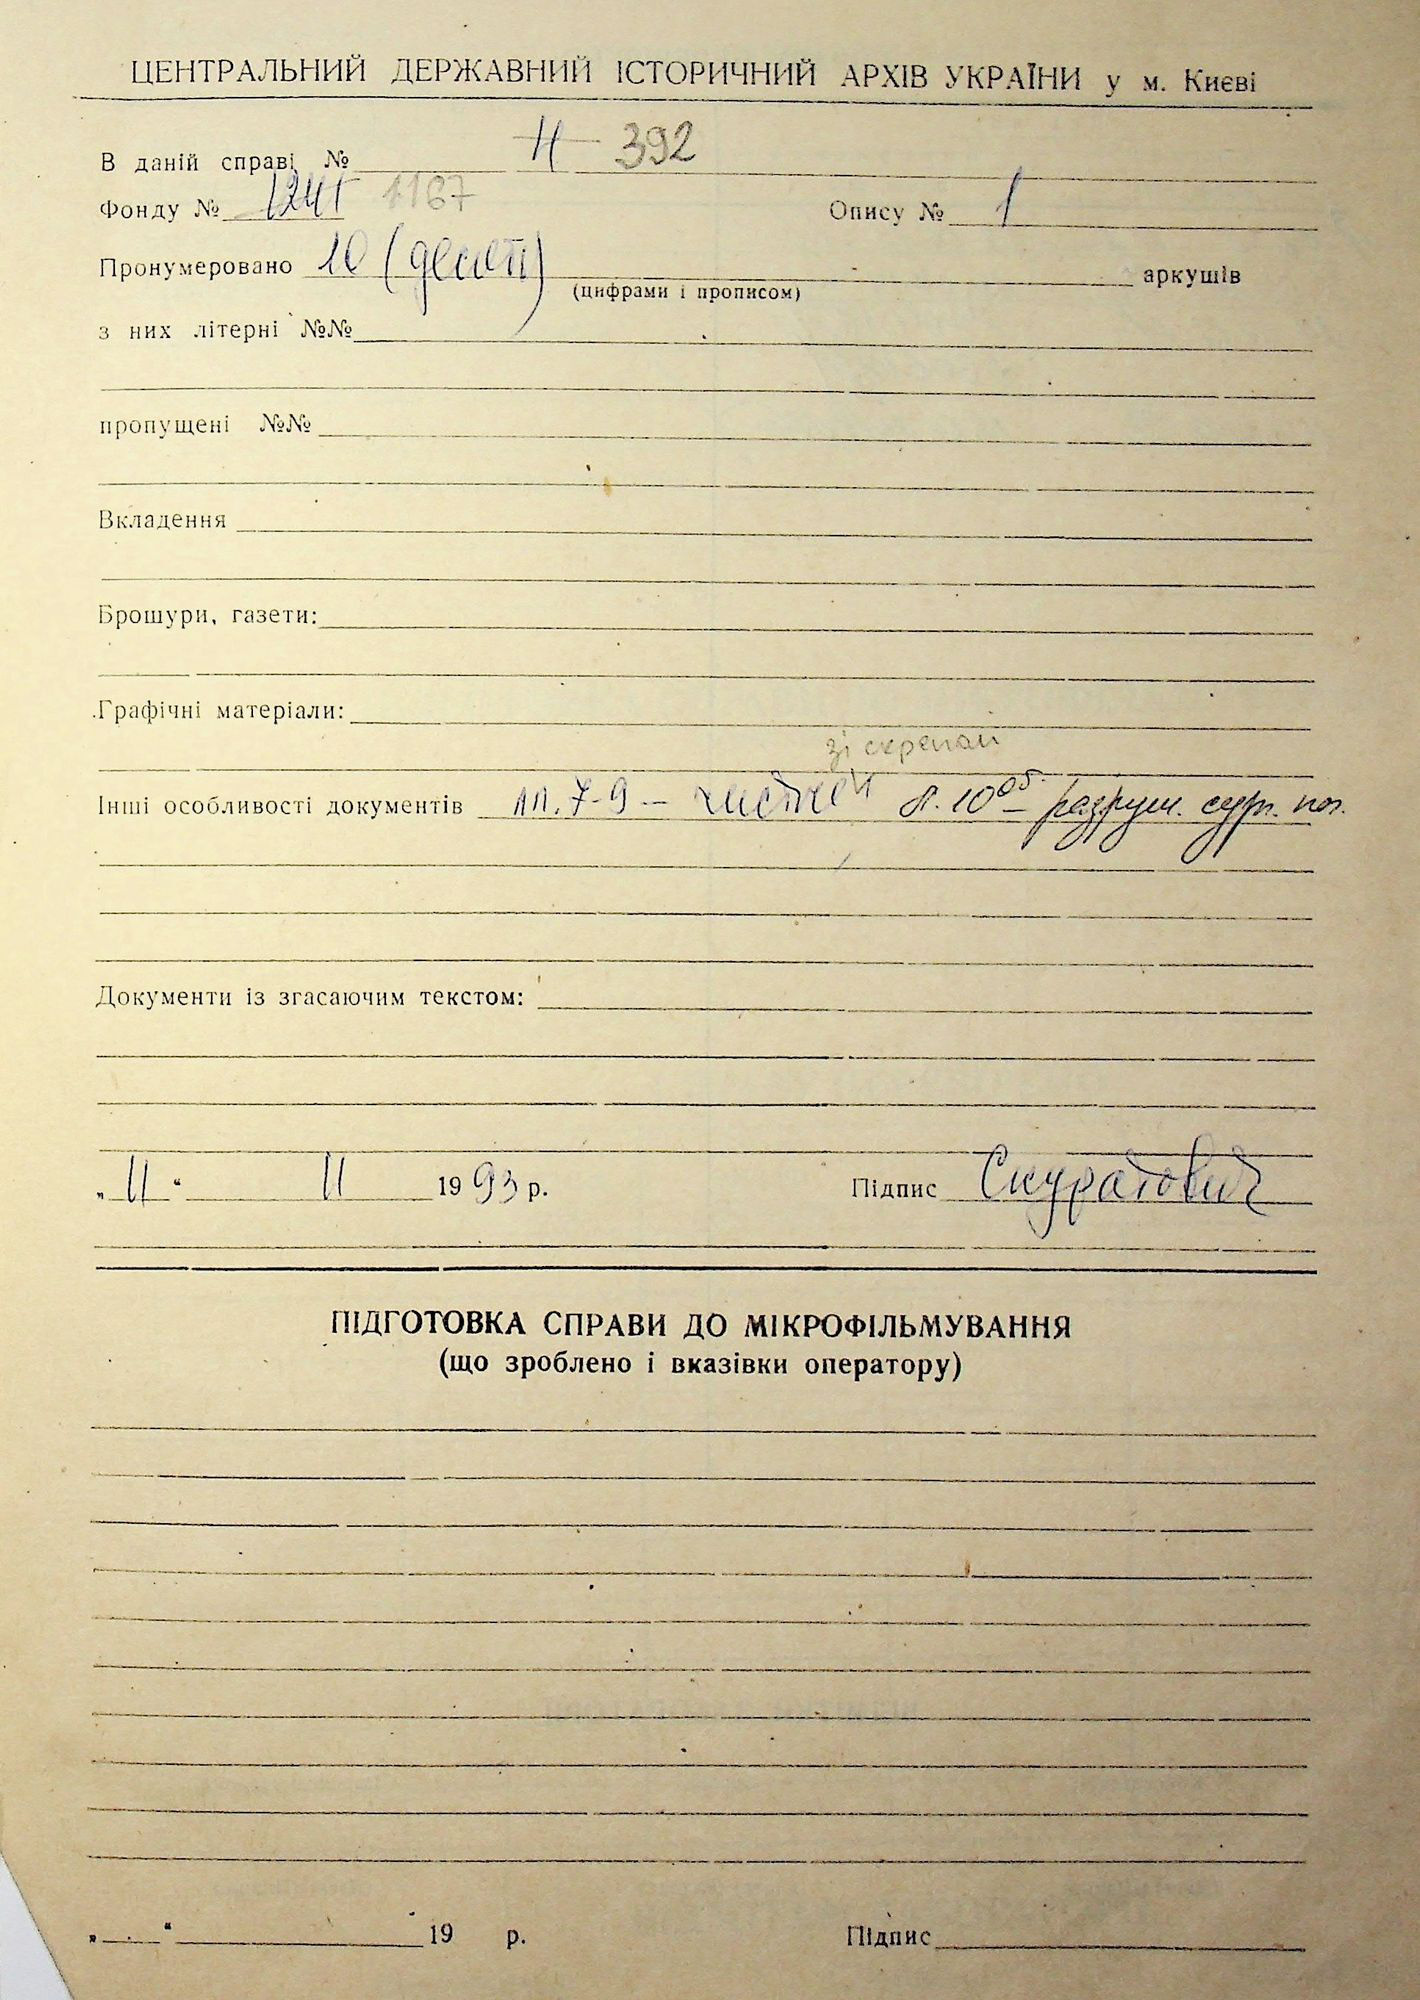 ЦЕНТРАЛЬНИЙ ДЕРЖАВНИЙ ІСТОРИЧНИЙ АРХІВ УКРАЇНИ у м. Києві
В даній справі № 4 392
Фонду № 1241 1167 Опису № 1
Пронумеровано 10 (десять) аркушів
(цифрами і прописом)
з них літерні №№
пропущені №№
Вкладення
Брошури, газети:
Графічні матеріали:
зі скрепами
Інші особливості документів лл. 7-9 – чистые л. 10 об. – разруш. сург. печ.
Документи із згасаючим текстом:
„ 11 “ 11 1993 р. Підпис Скуратович
ПІДГОТОВКА СПРАВИ ДО МІКРОФІЛЬМУВАННЯ
(що зроблено і вказівки оператору)
„ “ 19 р. Підпис